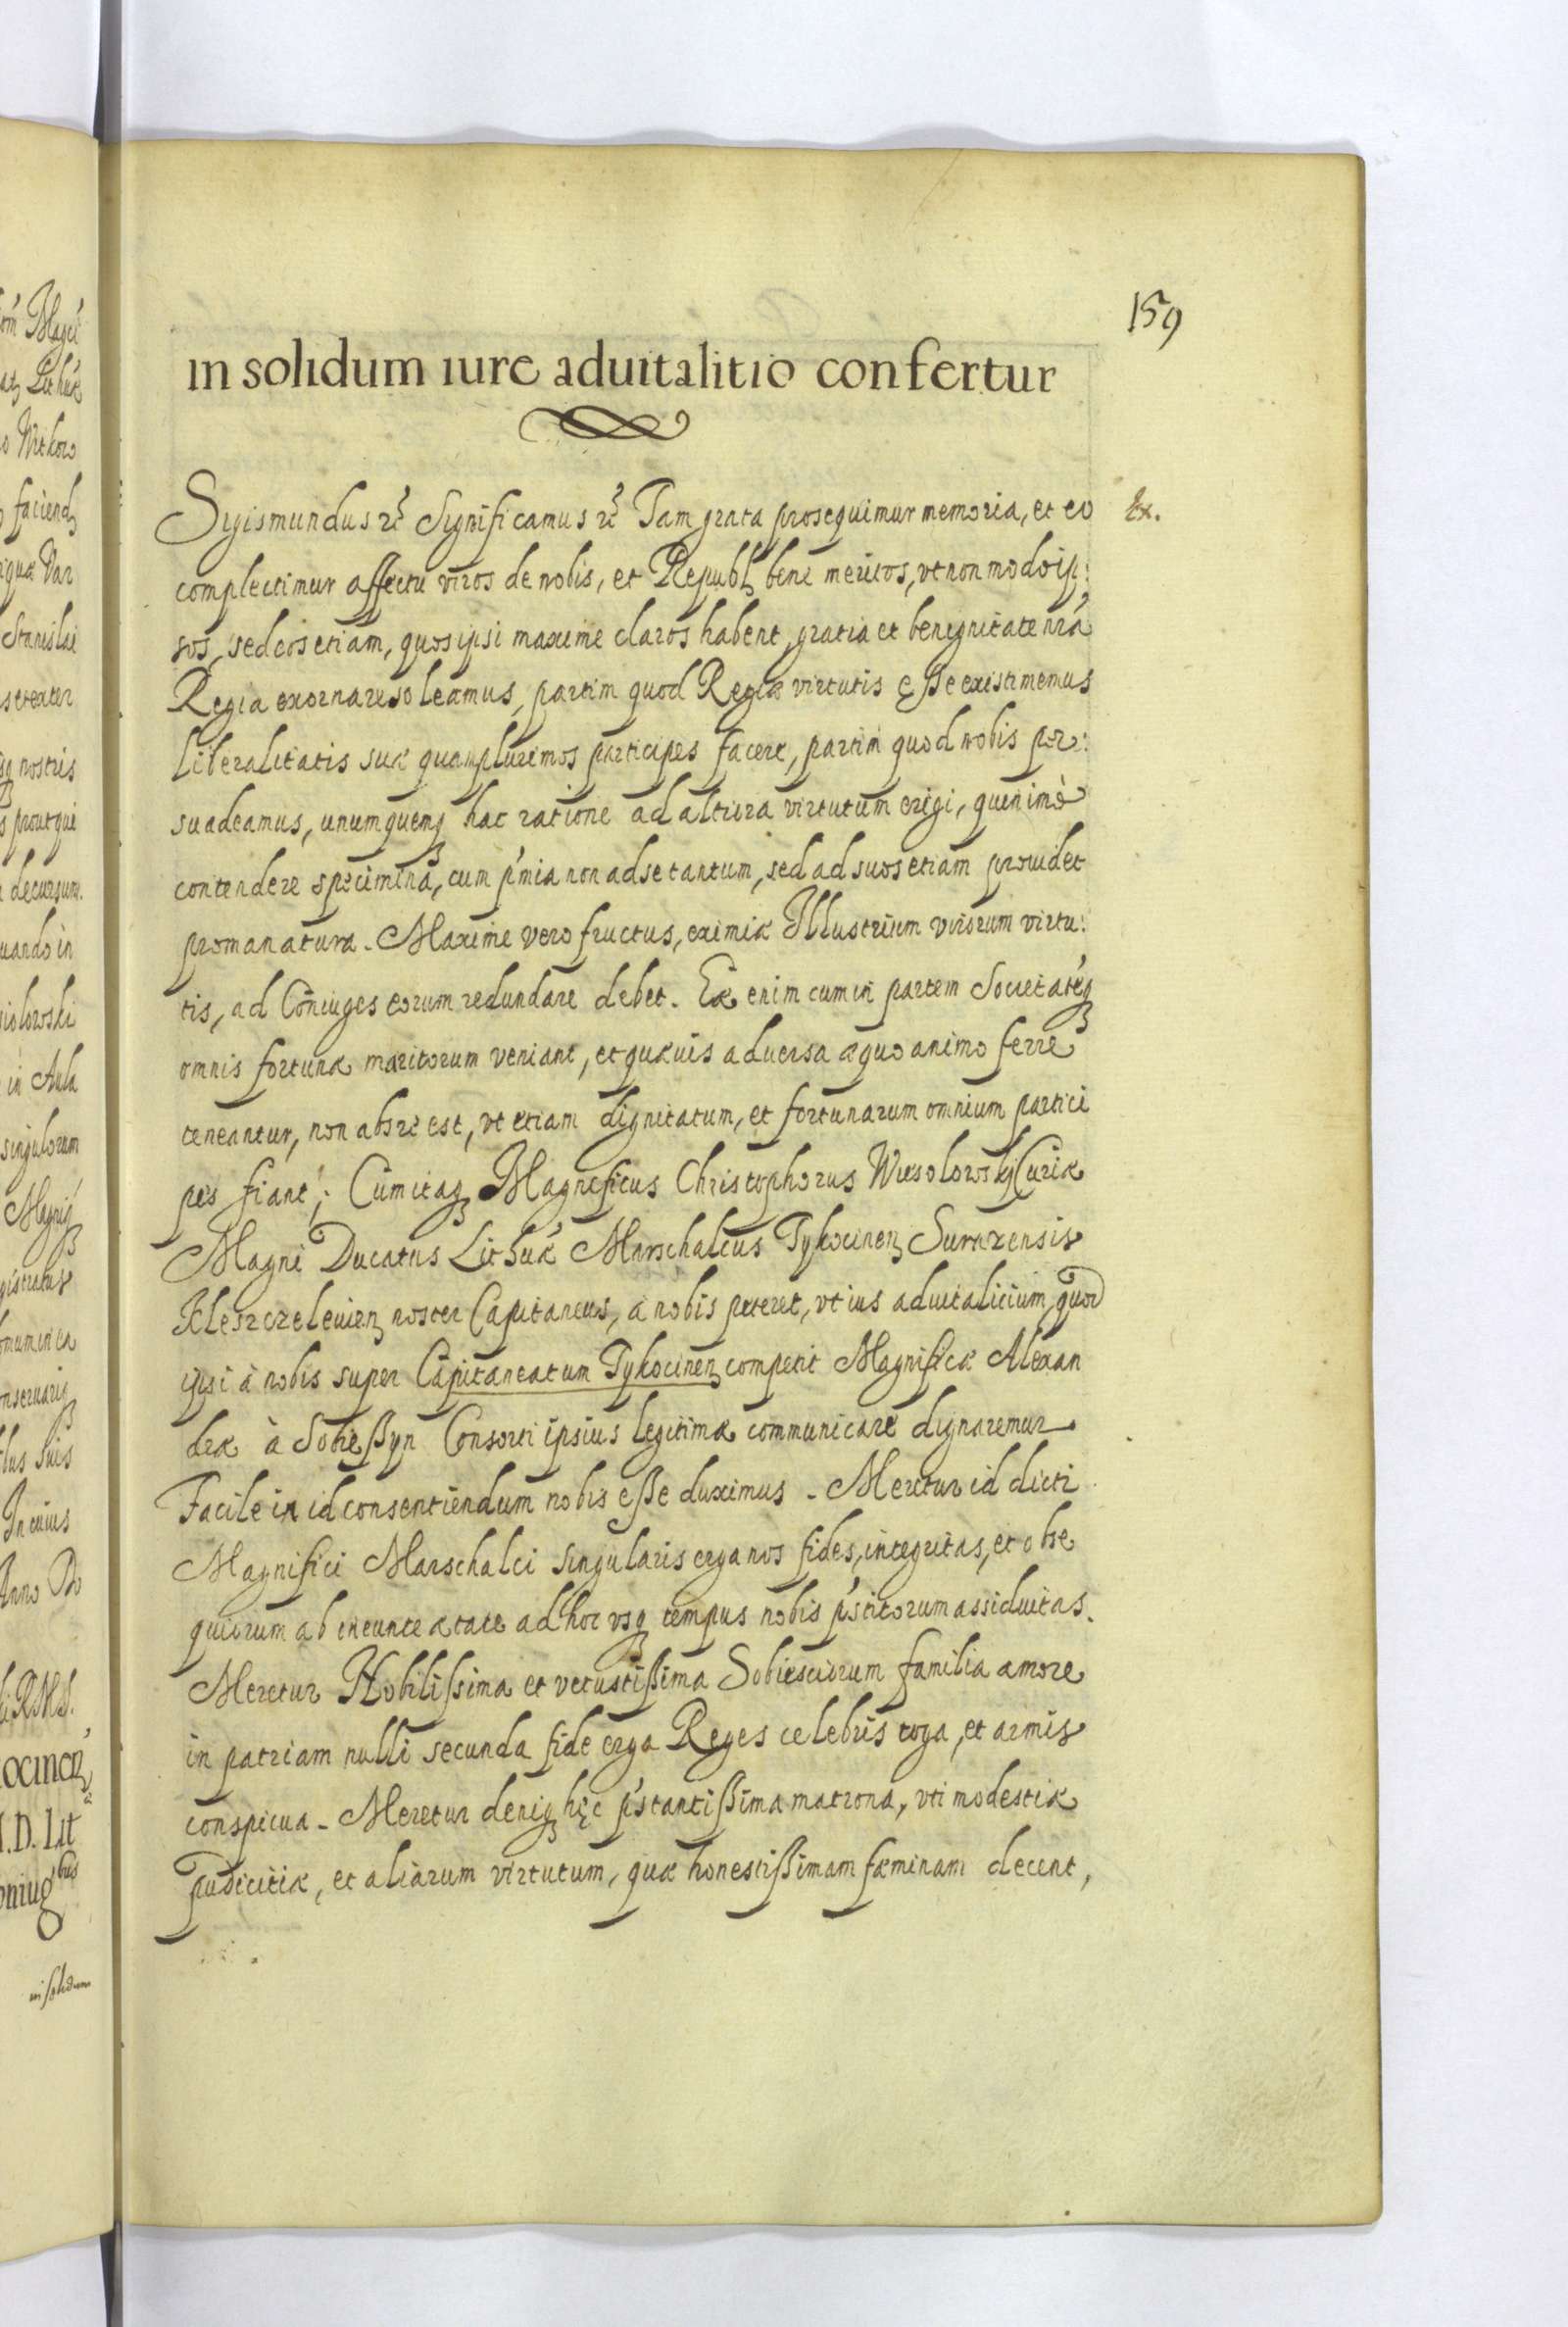 159
in solidum iure aduitalitio confertur
Sigismundus &c Significamus &c Tam grata prosequimur memoria, et eo
Ex.
complectimur affectu viros de nobis, et Republ bene meritos, vt non modo ip:
sos, sed eos etiam, quos ipsi maxime claros habent, gratia et benignitate nrá
Regia exornare soleamus, partim quod Regiæ virtutis eße existimemus
liberalitatis suæ quamplurimos participes facere, partim quod nobis per:
suadeamus, unumquemq hac ratione ad altiora virtutum erigi, quinimò
contendere specimina, cum p'mia non ad se tantum, sed ad suos etiam prouidet
promanatura. Maxime vero fructus, eximiæ Illustrium virorum virtu:
tis, ad Coniuges eorum redundare debet. Eæ enim cum in partem Societatéq
omnis fortunæ maritorum veniant, et quæuis aduersa æquo animo ferre
teneantur, non abs re est, vt etiam dignitatum, et fortunarum omnium partici
pes fiant; Cum itaq Magnificus Christophorus Wiesolowskj Curiæ
Magni Ducatus Lithuæ Marschalcus Tykocinen Surazensis
Kleszczelewien noster Capitaneus, a nobis peteret, vt ius aduitalicium, quod
ipsi à nobis super Capitaneatum Tykocinen competit Magnificæ Alexan
dræ à Sobießyn Consorti ipsius legitimæ communicare dignaremur
Facile in id consentiendum nobis eße duximus. Meretur id dicti
Magnifici Marschalci singularis erga nos fides, integritas, et obse
quiorum ab ineunte ætate ad hoc vsq tempus nobis p'stitorum assiduitas.
Meretur Nobilißima et vetustißima Sobiesciorum familia amore
in patriam nulli secunda fide erga Reges celebris toga, et armis
conspicua. Meretur deniq hęc p'stantißima matrona, vti modestiæ
pudicitiæ, et aliarum virtutum, quæ honestißimam fæminam decent,